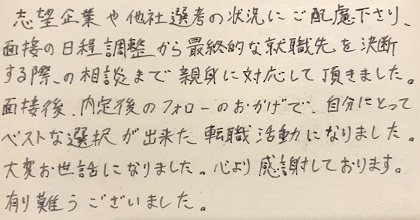 志望企業や他社選考の状況にご配慮下さり、
面接の日程調整から最終的な就職先を決断
する際の相談まで親身に対応して頂きました。
面接後、内定後のフォローのおかげで、自分にとって
ベストな選択が出来た転職活動になりました。
大変お世話になりました。心より感謝しております。
有り難うございました。